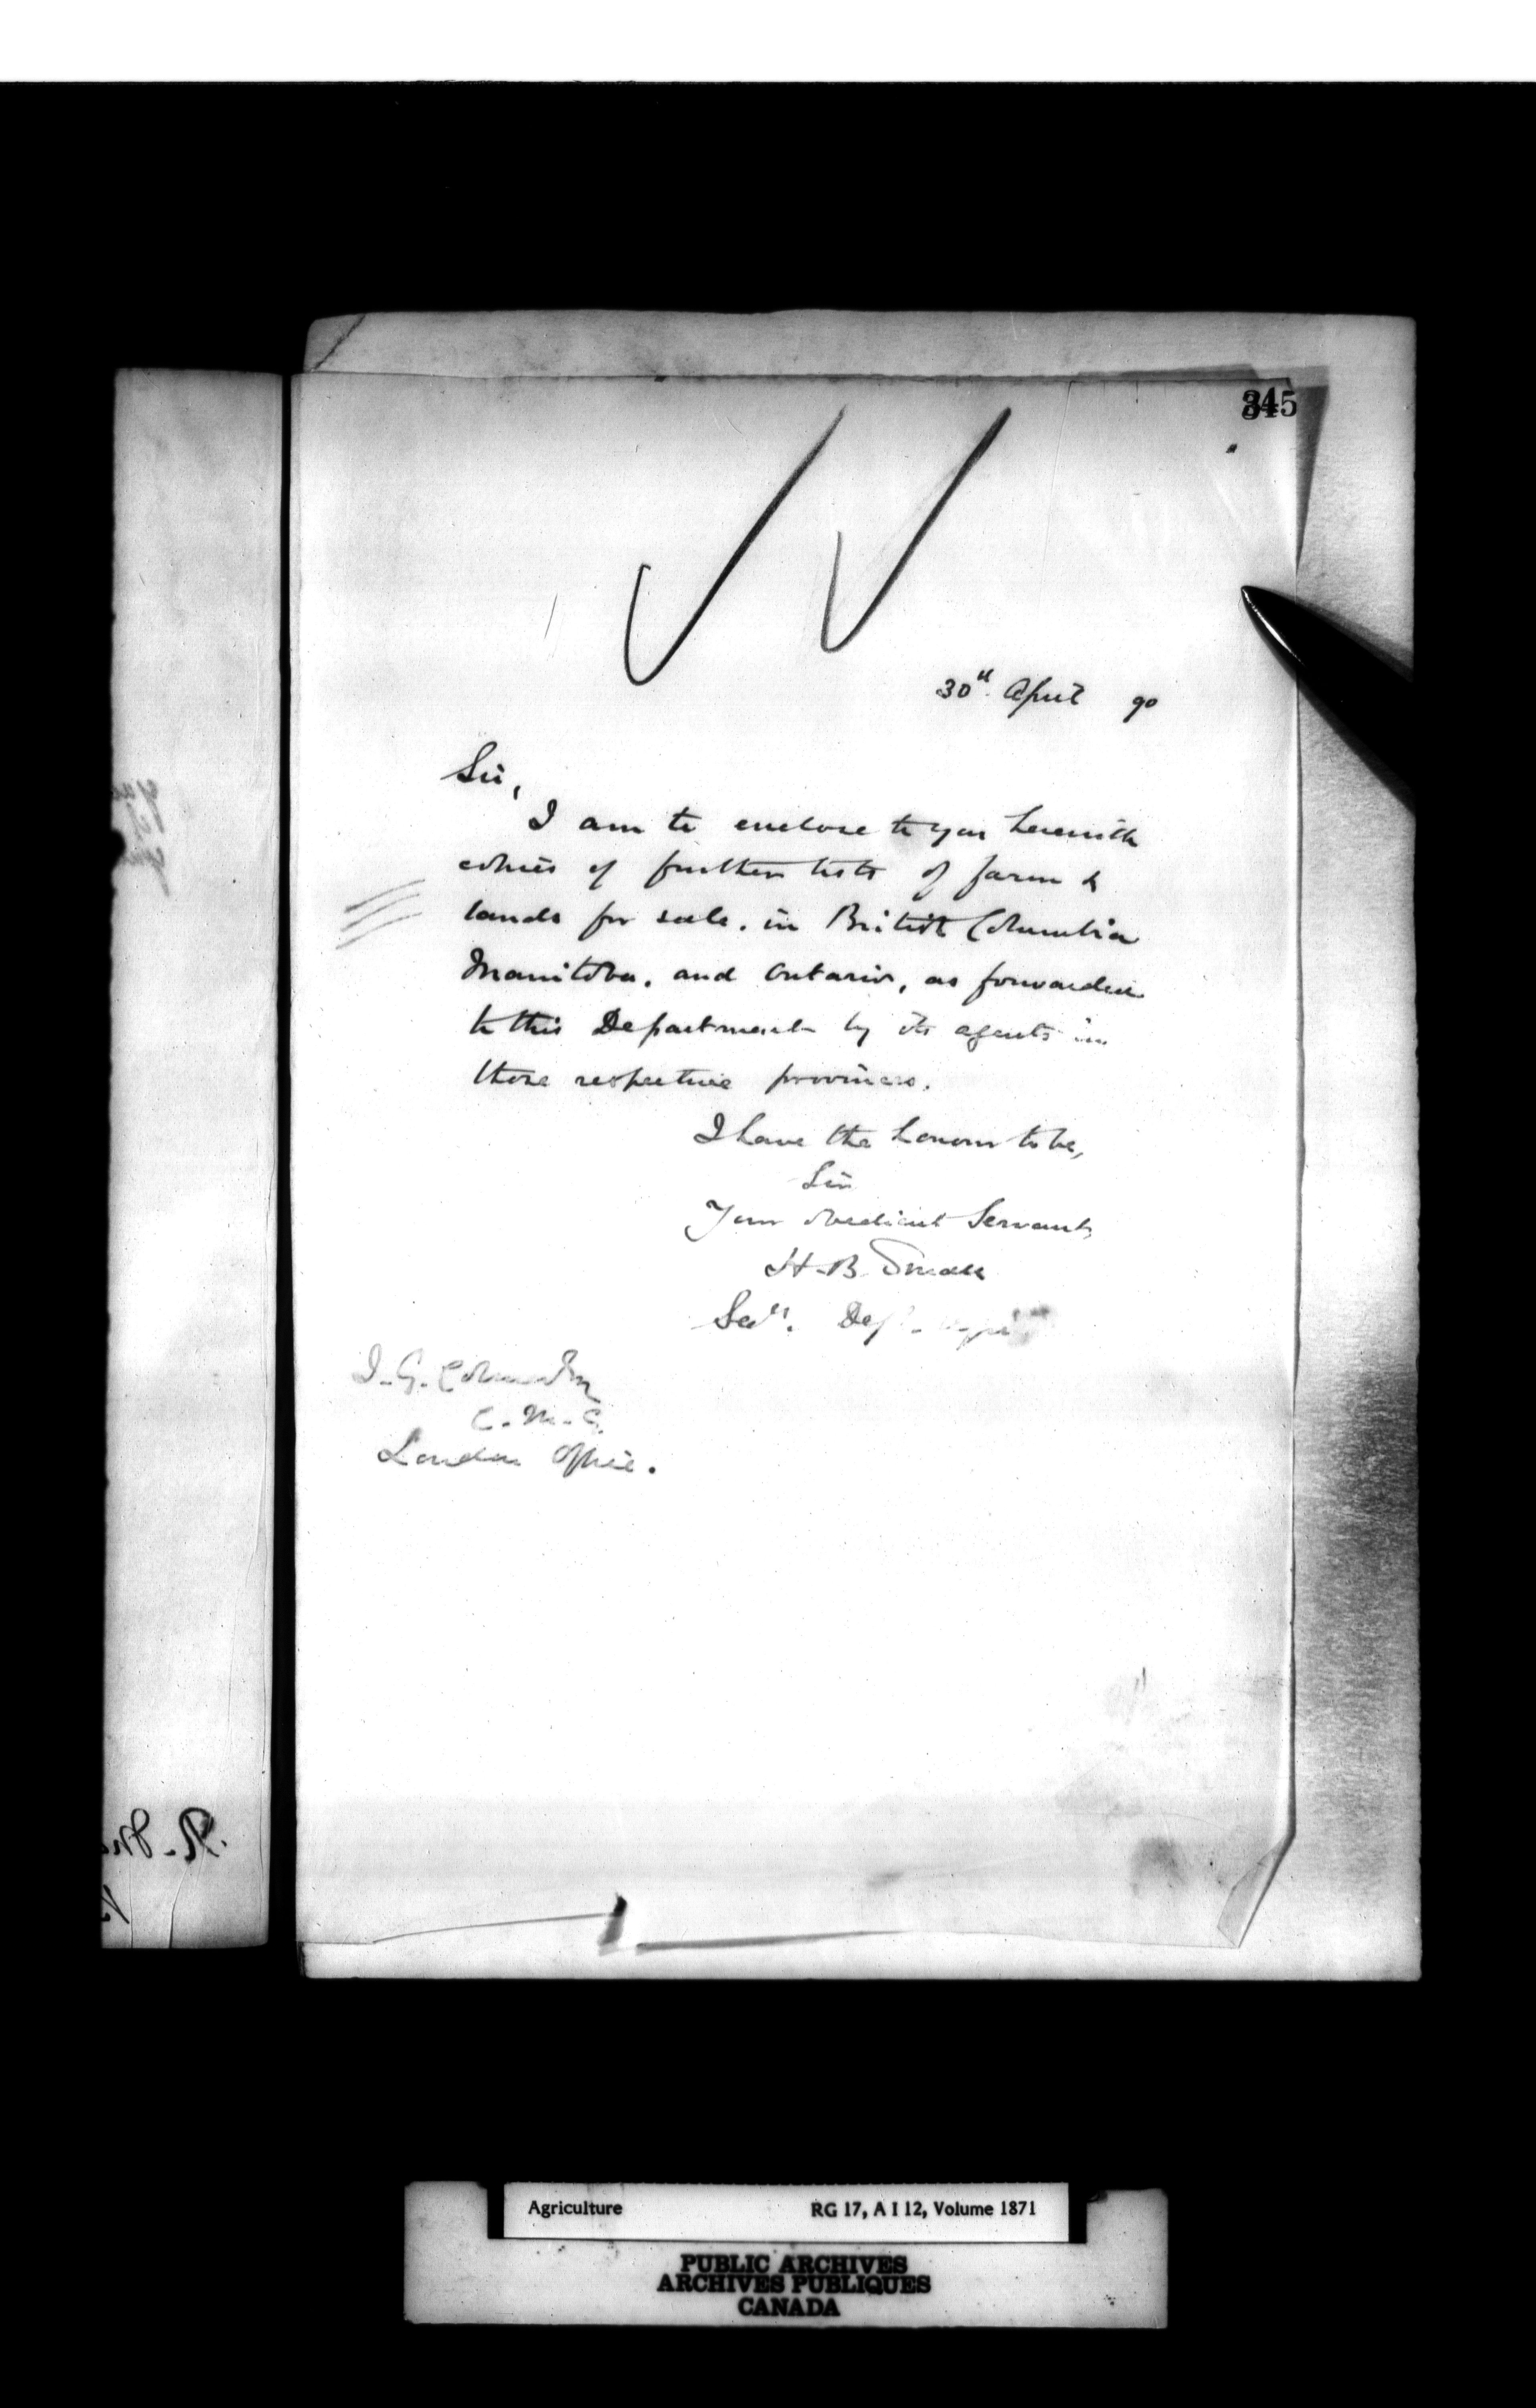 345
30th April 90
Sir,
I am to enclose to you herewith
copies of further lists of farm &
lands for sale. in British Columbia
Manitoba. and Ontario, as forwarded
to this Department by its agents in
those respective provinces.
I have the honour to be,
Sir
Your obedient Servant,
H. B. Small
Secy. Dept. Agri
J. G. Colmer Esq
C. M. G.
London Office.
Agriculture RG 17, A I 12, Volume 1871
PUBLIC ARCHIVES
ARCHIVES PUBLIQUES
CANADA